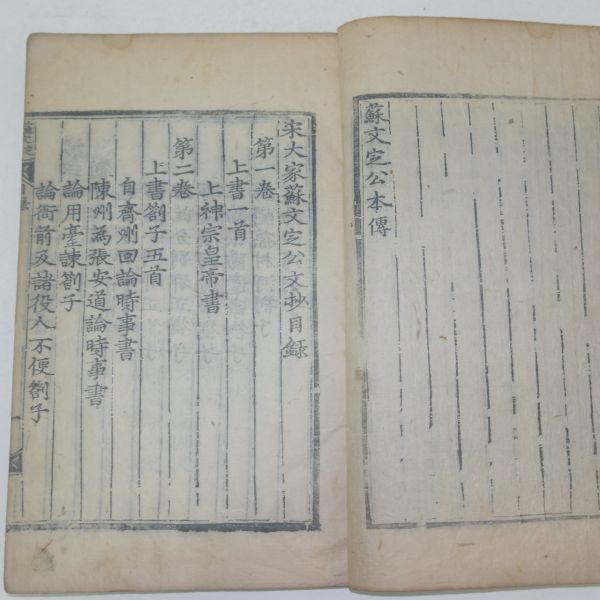 蘇文定公本傳
宋大家蘇文定公文抄目録
第一卷
上書一首
上神宗皇帝書
第二卷
上書劄子五首
自齊州回論時事書
陳州爲張安道論時事書
論用臺諫劄子
論衙前及諸役人不便劄子